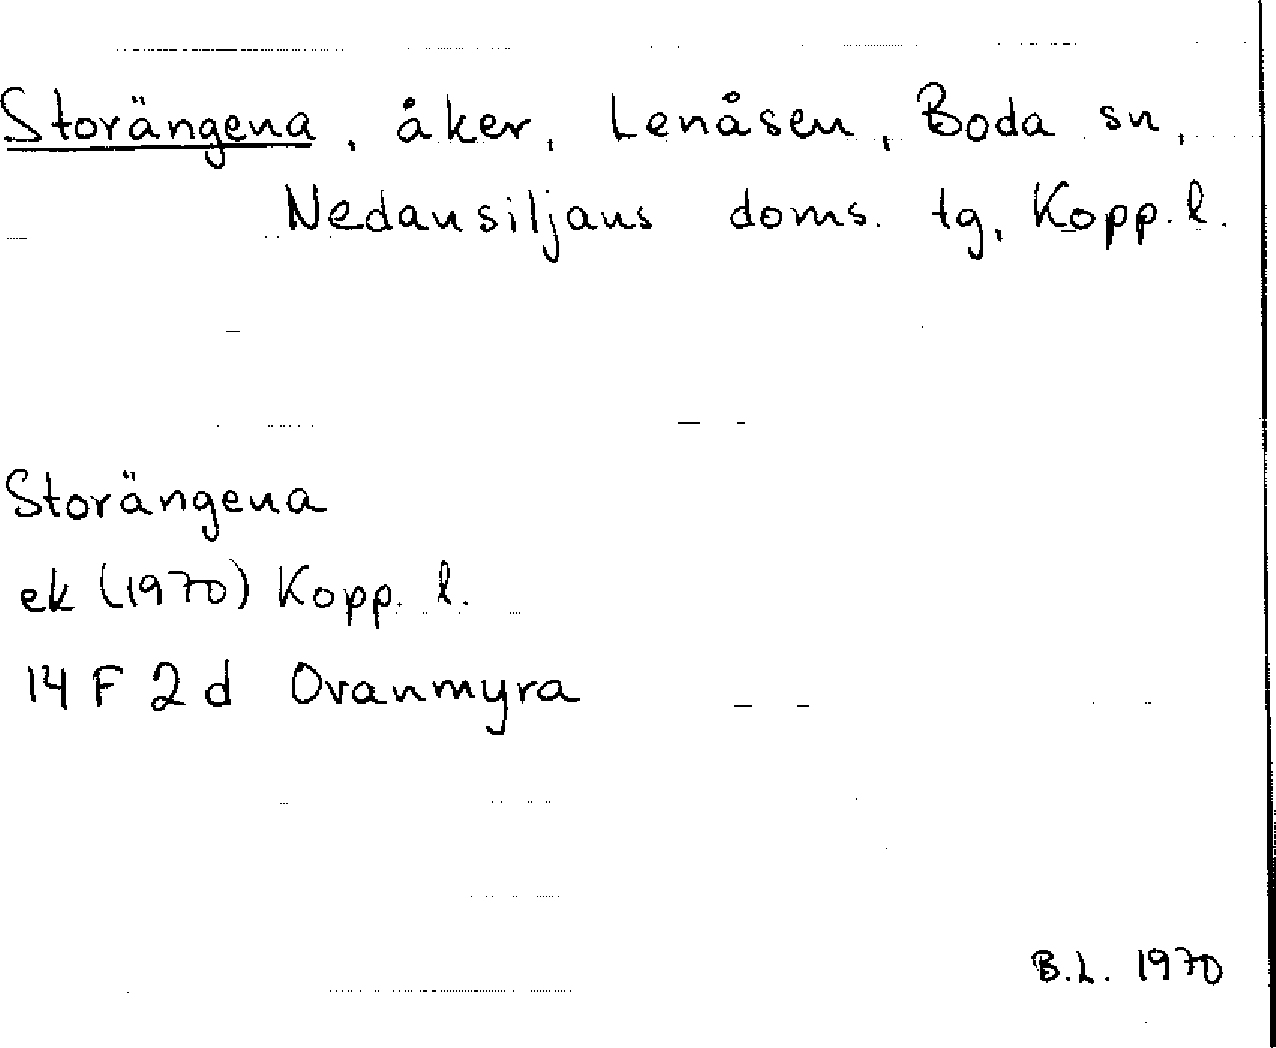 Storängena, åker, Lenåsen, Boda sn,
Nedansiljans doms. tg, Kopp. l.
Storängena
ek (1970) Kopp. l.
14 F 2 d Ovanmyra
B.L. 1970